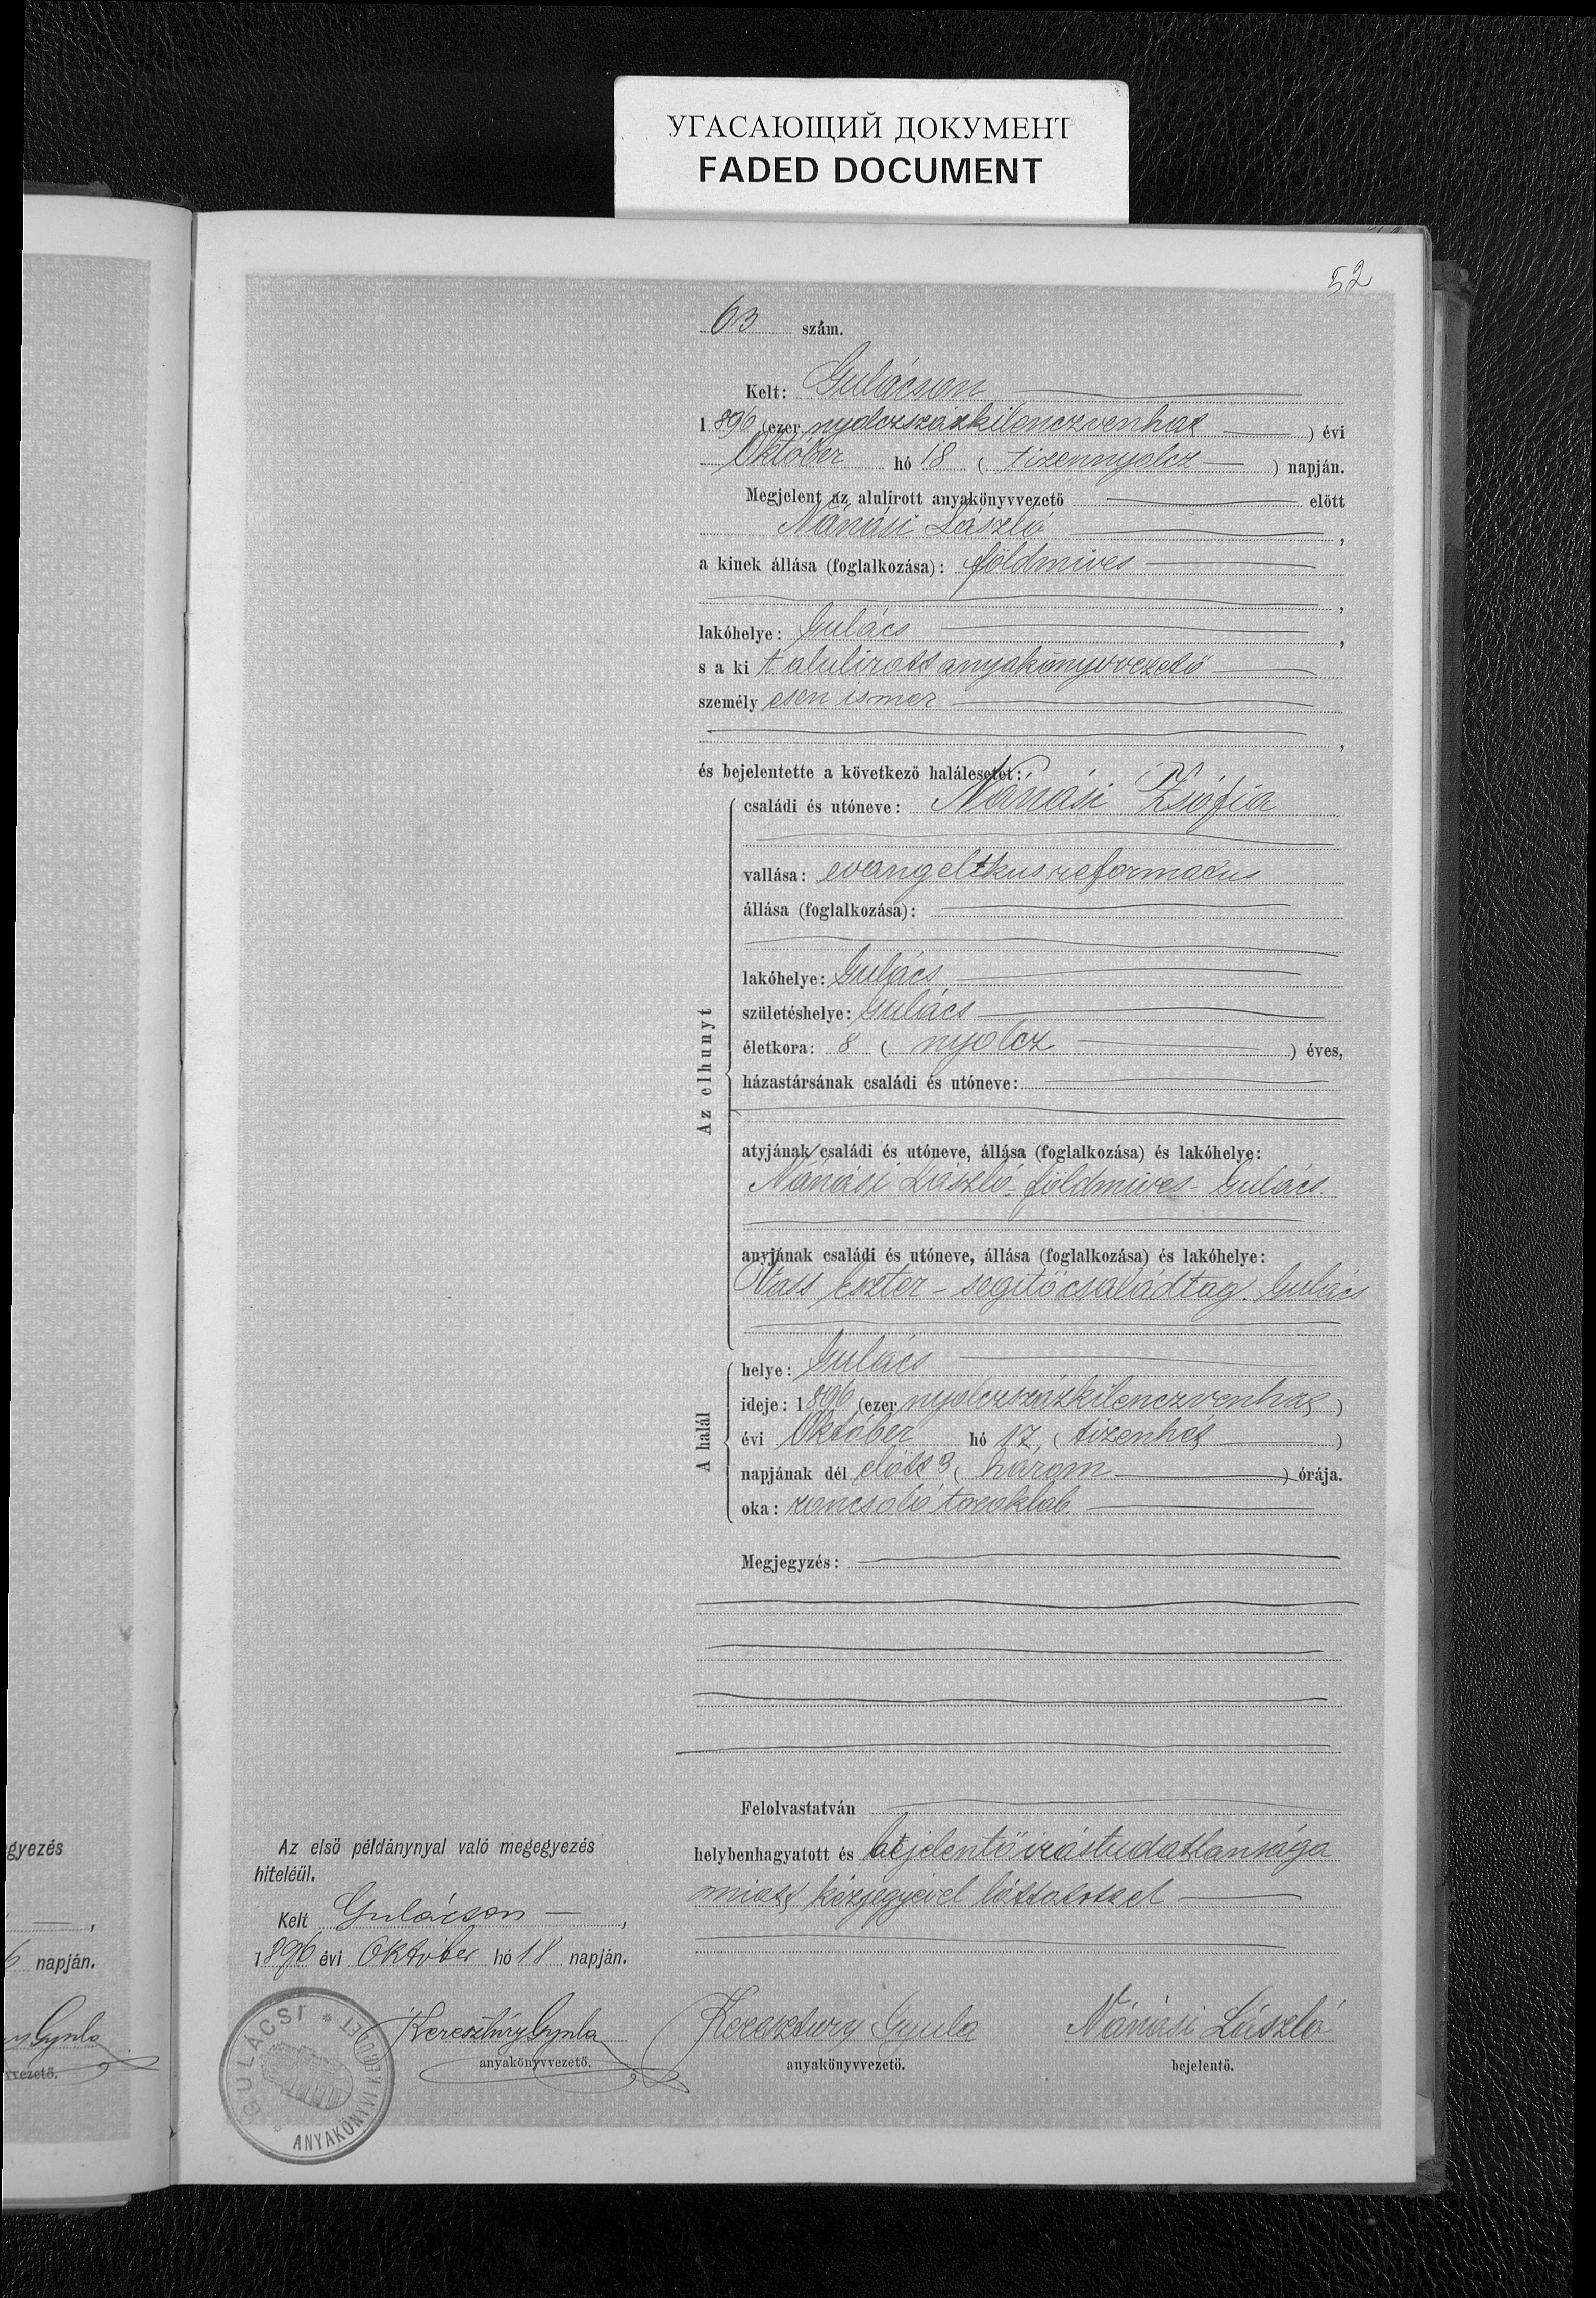 УГАСАЮЩИЙ ДОКУМЕНТ
FADED DOCUMENT
52
63 szám.
Kelt: Gulácson
1896 (ezer nyolczszázkilenczvenhat) évi
Október hó 18 (tizennyolcz) napján.
Megjelent az alulírott anyakönyvvezető előtt
Nánási László,
a kinek állása (foglalkozása): földmives
,
lakóhelye: Gulács,
s a ki t alulirott anyakönyvvezető
személy esen ismer
,
és bejelentette a következő halálesetet:
Az elhunyt
családi és utóneve: Nánási Zsófia
vallása: evangelikus reformatus
állása (foglalkozása):
lakóhelye: Gulács
születéshelye: Gulács
életkora: 8 (nyolcz) éves,
házastársának családi és utóneve:
atyjának családi és utóneve, állása (foglalkozása) és lakóhelye:
Nánási László - földmives - Gulács.
anyjának családi és utóneve, állása (foglalkozása) és lakóhelye:
Vass Eszter - segitő családtag. Gulács
A halál
helye: Gulács
ideje: 1896 (ezer nyolczszázkilenczvenhat)
évi Október hó 17 (tizenhét)
napjának dél előtt 3 (három) órája.
oka: roncsoló toroklob.
Megjegyzés:
Felolvastatván
helybenhagyatott és bejelentő irástudatlansága
miatt kézjegyével láttatott el
Az első példánynyal való megegyezés
hiteléül.
Kelt Gulácson,
1896 évi Október hó 18 napján.
Keresztúry Gyula
anyakönyvvezető.
Keresztury Gyula
anyakönyvvezető.
Nánási László
bejelentő.
GULÁCSI ANYAKÖNYVI KERÜLET
gyezés
,
6 napján.
Gyula
vvezető.